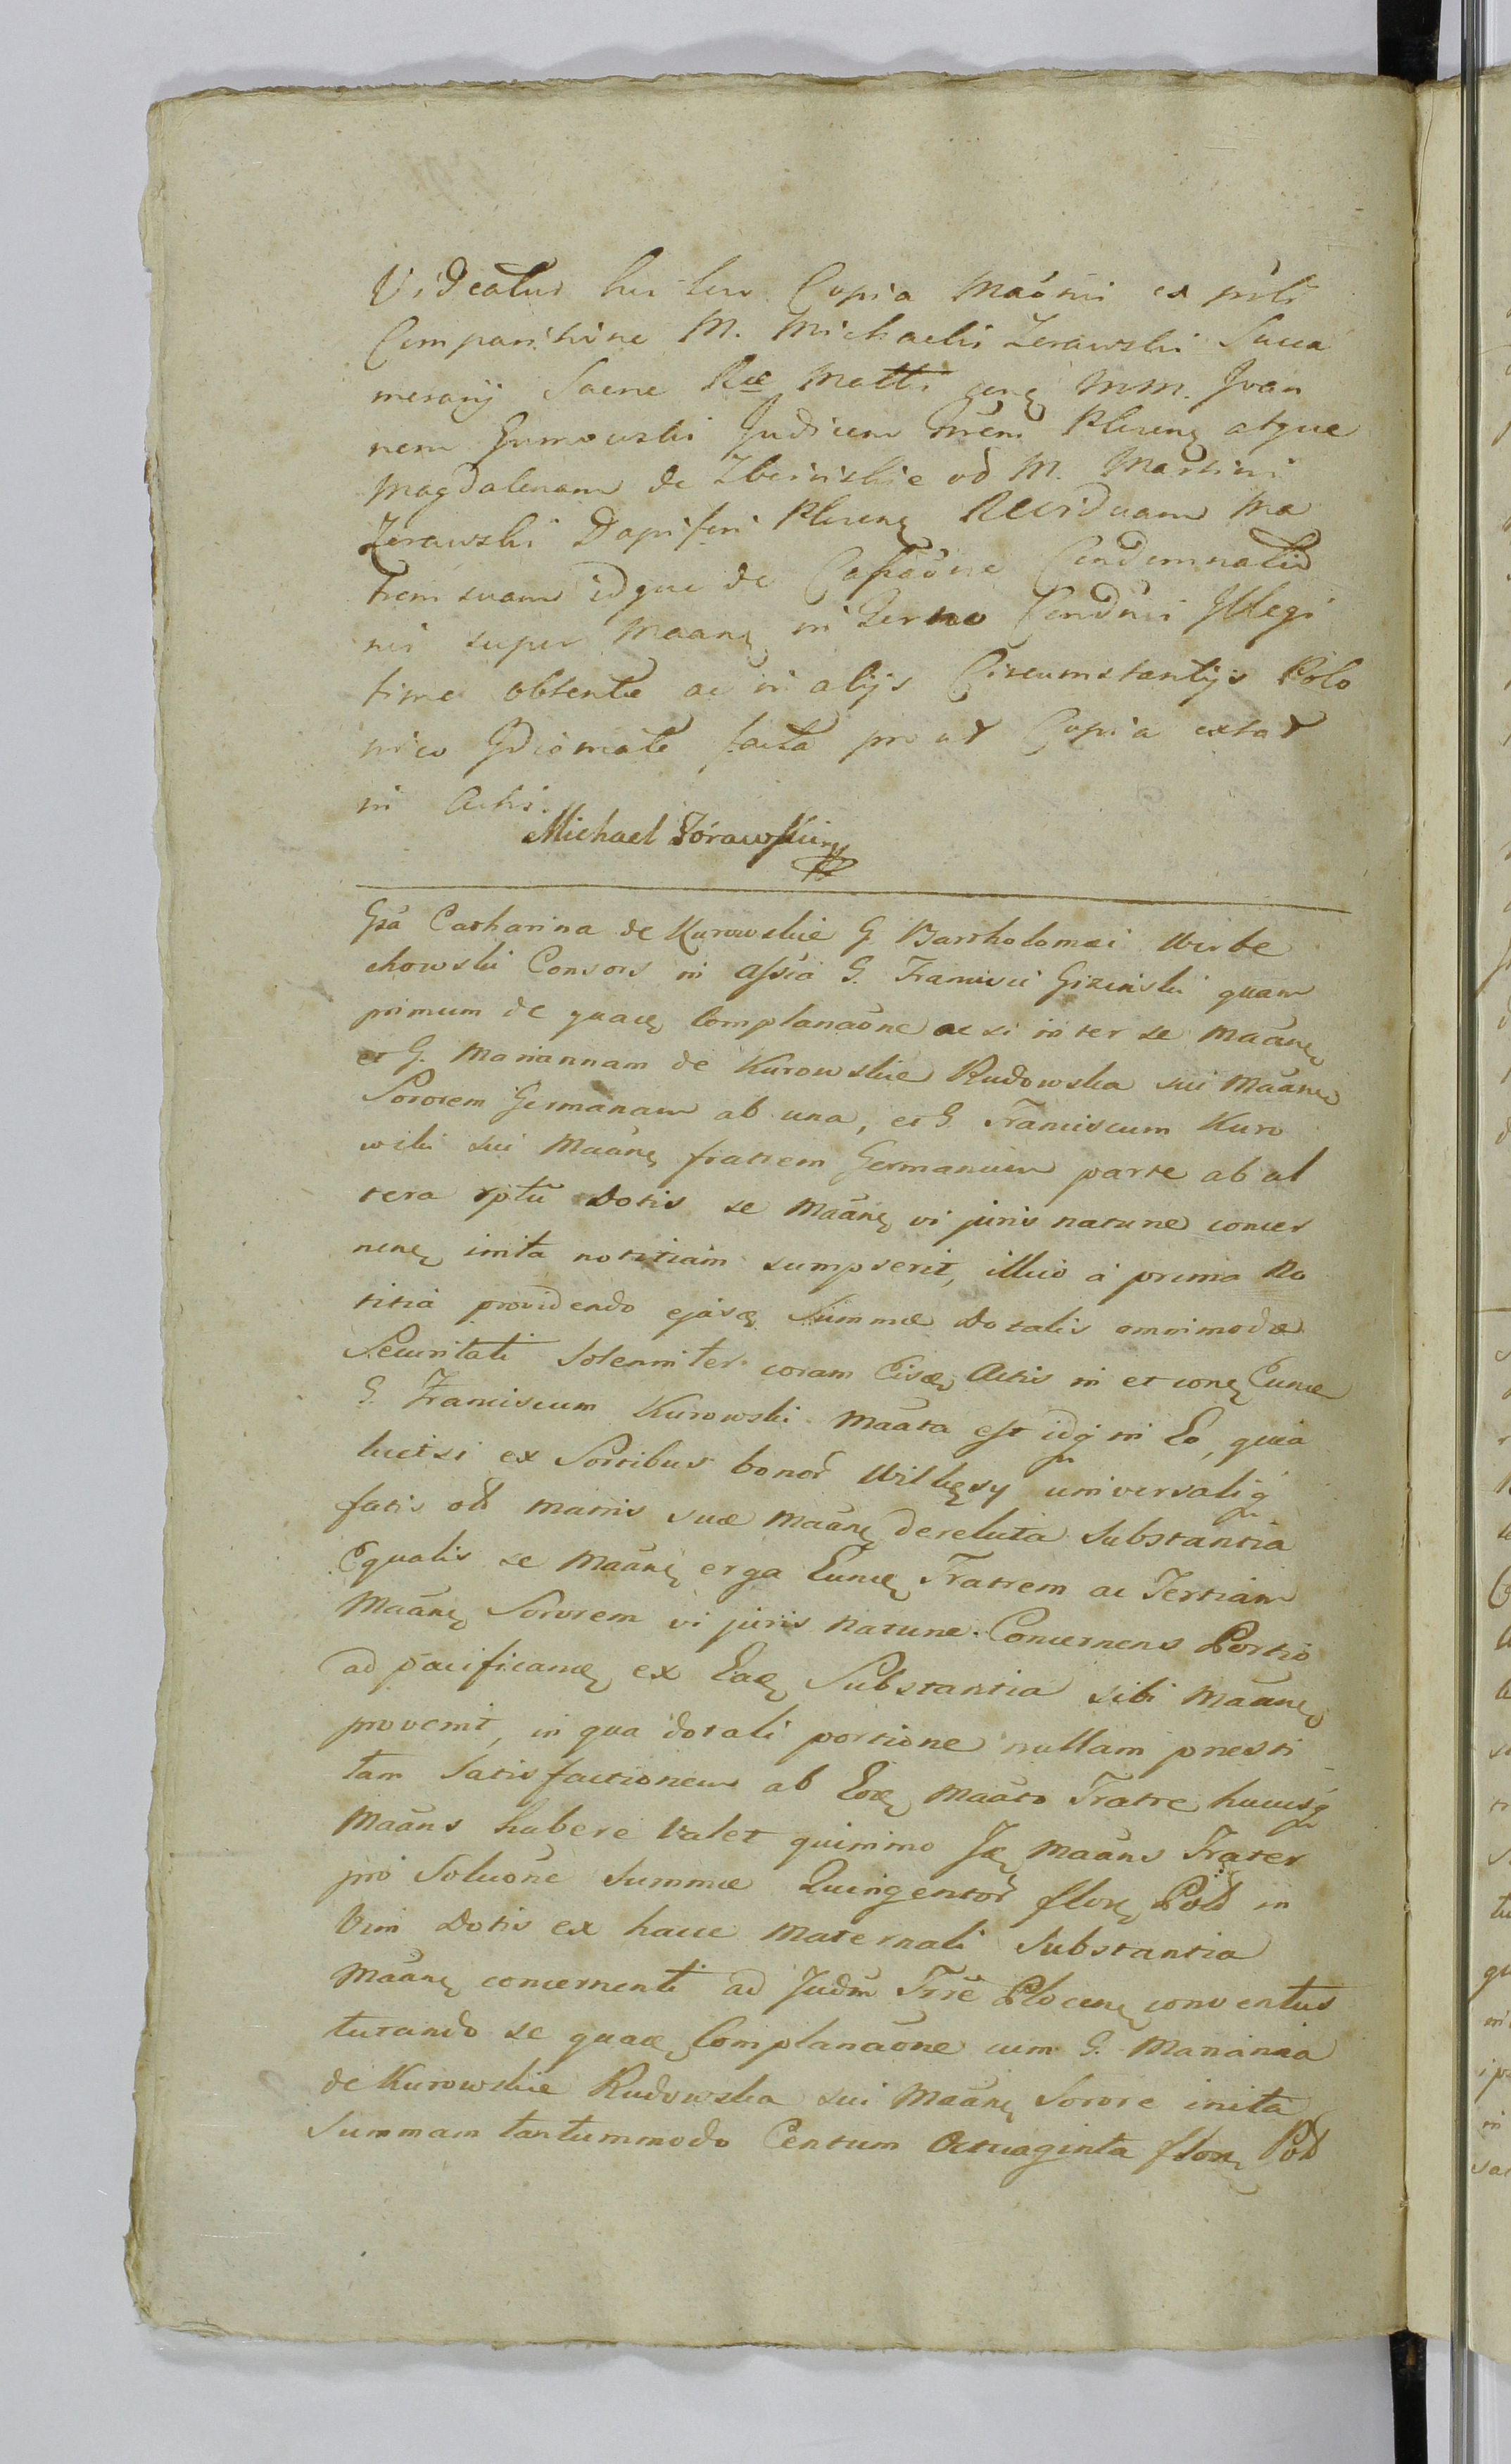 Videatur hic loco Copia Maãonis ex psoli
Comparitione M. Michaelis Zorawski Succa
merarij Sacrae Rae Mattis cong MM. Joan
nem Gumowski Judicem Trrem Plocens atque
Magdalenam de Zboinskie od M. Martini
Zorawski Dapiferi Plocens Relictam Viduam Ma
trem suam idque de Cassaõne Condemnatio
nis super Maanę in Termo Condnni Illegi
time obtentae ac in alijs Circumstantijs Polo
nico Idiomate facta prout Copia extat
in Actis.
Michael Zórawski mp
Gsa Catharina de Kurowskie G. Bartholomæi Wierbe
chowski Consors in assia G. Francisci Gizinski quam
primum de quacę Complanaõne ac si inter se Maãnę
et G. Mariannam de Kurowskie Rudowska sui Maãnę
Sororem Germanam ab una, et G. Franciscum Kuro
wski sui Maãnę fratrem Germanum parte ab al
tera rptũ Dotis se Maãnę vi juris naturæ concer
nenę inita notitiam sumpserit, illico à prima No
titia providendo ejusę Summæ Dotalis omnimodæ
Securitati Solenniter coram Eisdę Actis in et conę Eunę
G. Franciscum Kurowski Maãta est idq in Eo, quia
licet si ex Sortibus bonor Wilkęsy universaliq
fatis od matris suæ Maãnę derelicta Substantia
Equalis se Maãnę erga Eunę Fratrem ac Tertiam
Maãnę Sororem vi juris naturæ Concernens Portio
ad pacificanę ex Eaę Substantia sibi Maãnę
provenit, in qua dotali portione nullam præsti
tam Satisfactionem ab Eoę Maãto Fratre hucusq
Maãns habere valet quinimo Ję Maãns Frater
pro Soluõne Summæ Quingentor flor Pold in
Vim Dotis ex hacce Maternali Substantia
Maãnę concernenti ad Judm Trre Plocenę conventus
tutando se quaę Complanaõne cum G. Marianna
de Kurowskie Rudowska sui Maãnę Sorore inita
Summam tantummodo Centum Octuaginta flor Pold